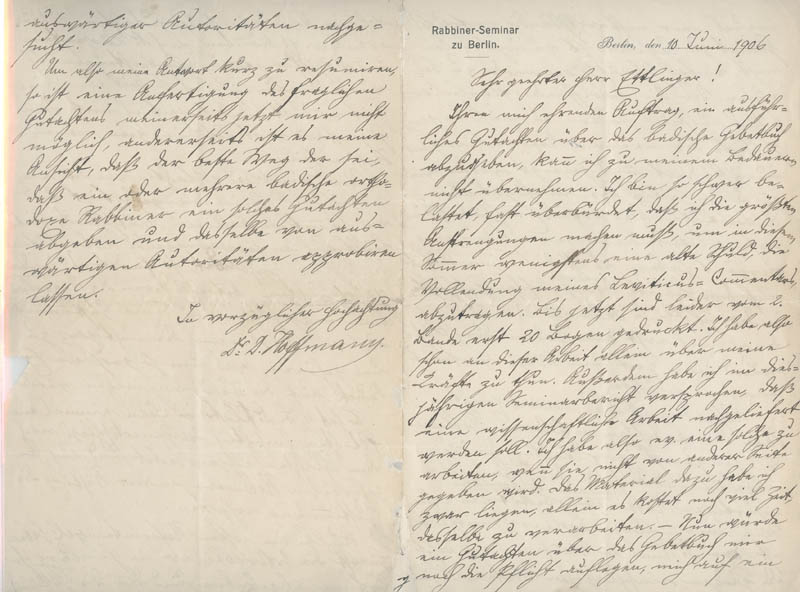 Rabbiner-Seminar
zu Berlin.
Berlin, den 10. Juni 1906
Sehr geehrter Herr Ettlinger!
Ihren mich ehrenden Auftrag, ein ausführ-
liches Gutachten über das badische Gebetbuch
abzugeben, kann ich zu meinem Bedauern
nicht übernehmen. Ich bin so schwer be-
lastet, fast überbürdet, daß ich die größten
Anstrengungen machen muß, um in diesem
Sommer wenigstens eine alte Schuld, die
Vollendung meines Leviticus-Commentars,
abzutragen. Bis jetzt sind leider vom 2.
Bande erst 20 Bogen gedruckt. Ich habe also
schon an dieser Arbeit allein über meine
Kräfte zu thun. Außerdem habe ich im dies-
jährigen Seminarbericht versprochen, daß
eine wissenschaftliche Arbeit nachgeliefert
werden soll. Ich habe also ev. eine solche zu
arbeiten, wenn sie nicht von anderer Seite
gegeben wird. Das Material dazu habe ich
zwar liegen, allein es kostet noch viel Zeit,
dasselbe zu verarbeiten. — Nun würde
ein Gutachten über das Gebetbuch mir
noch die Pflicht auflegen, mich auf ein
auswärtiger Autoritäten nachge-
sucht.
Um also meine Antwort kurz zu resumiren,
so ist eine Anfertigung des fraglichen
Gutachtens meinerseits jetzt mir nicht
möglich, andererseits ist es meine
Ansicht, daß der beste Weg der sei,
daß ein oder mehrere badische ortho-
doxe Rabbiner ein solches Gutachten
abgeben und dasselbe von aus-
wärtigen Autoritäten approbiren
lassen.
In vorzüglicher Hochachtung
Dr. D. Hoffmann.